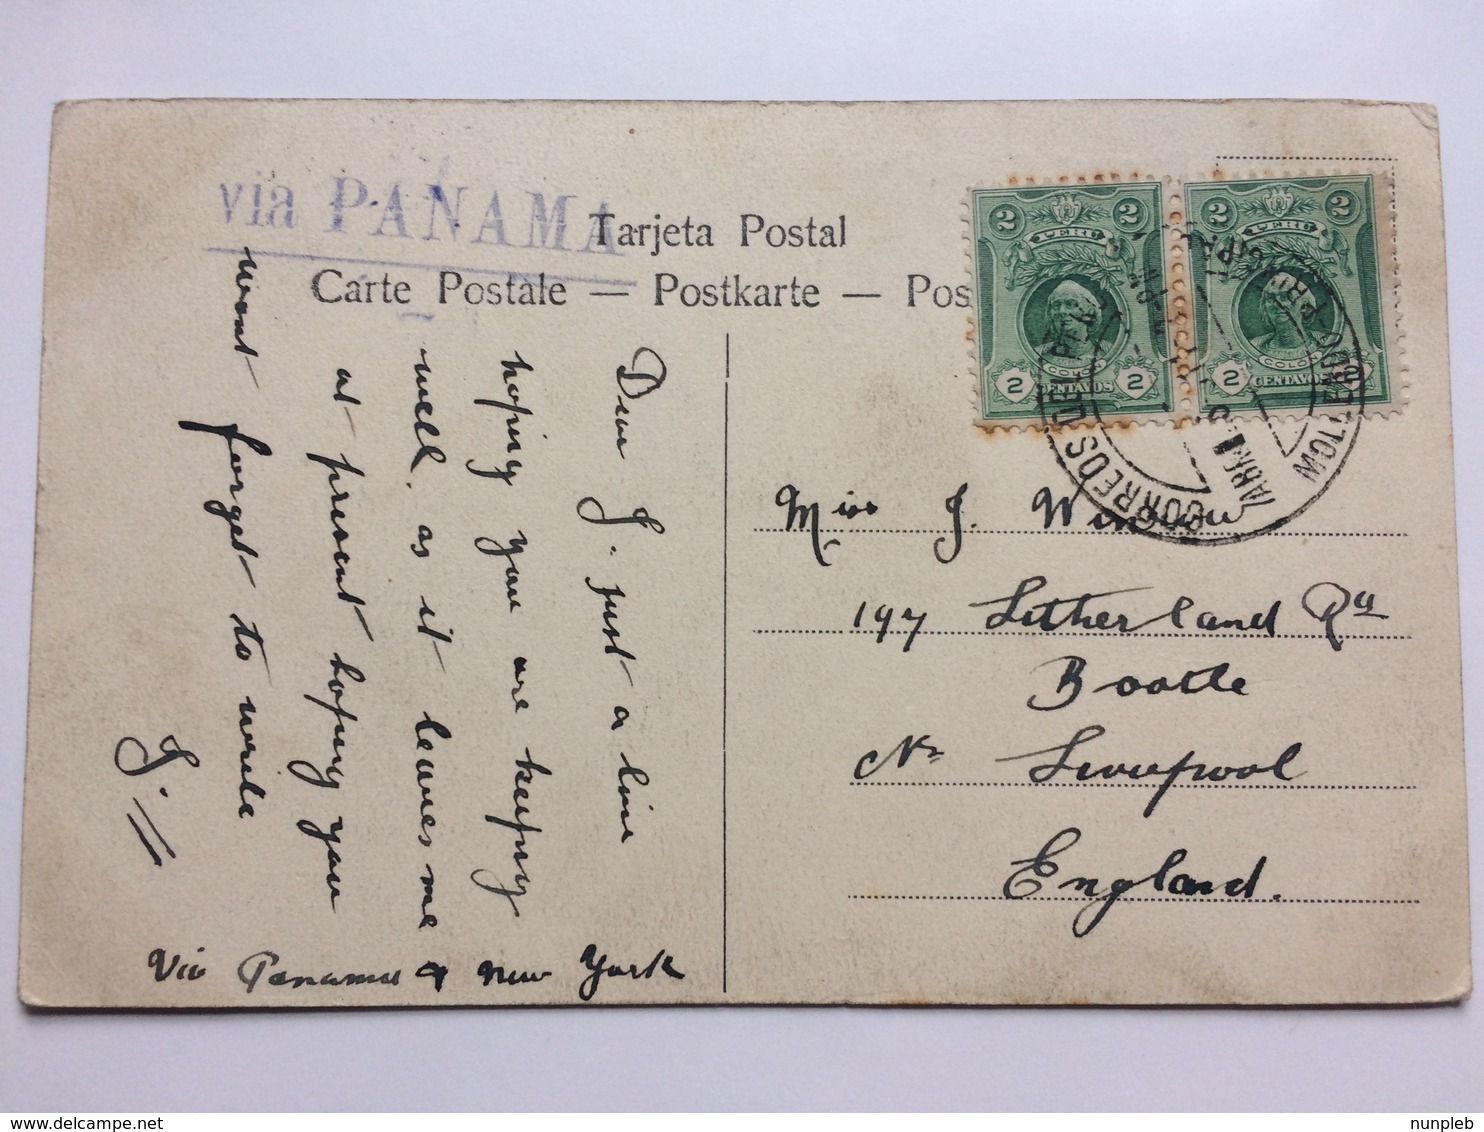 via PANAMA
Tarjeta Postal
Carte Postale — Postkarte — Pos
2 2 PERU
COLON
2 CENTAVOS 2
2 2 PERU
COLON
2 CENTAVOS
CORREOS DEL PERU
MOLLENDO PRINCIPAL
Dear J. just a line
hoping you are keeping
well. as it leaves me
at present hoping you
wont forget to write
J.
Via Panama & New York
Miss J.
197 Litherland Rd
Bootle
Nr Liverpool
England.
delcampe.net
nunpleb